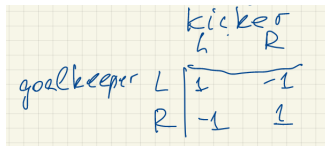 kicker
L R
goalkeeper L 1 -1
R -1 1